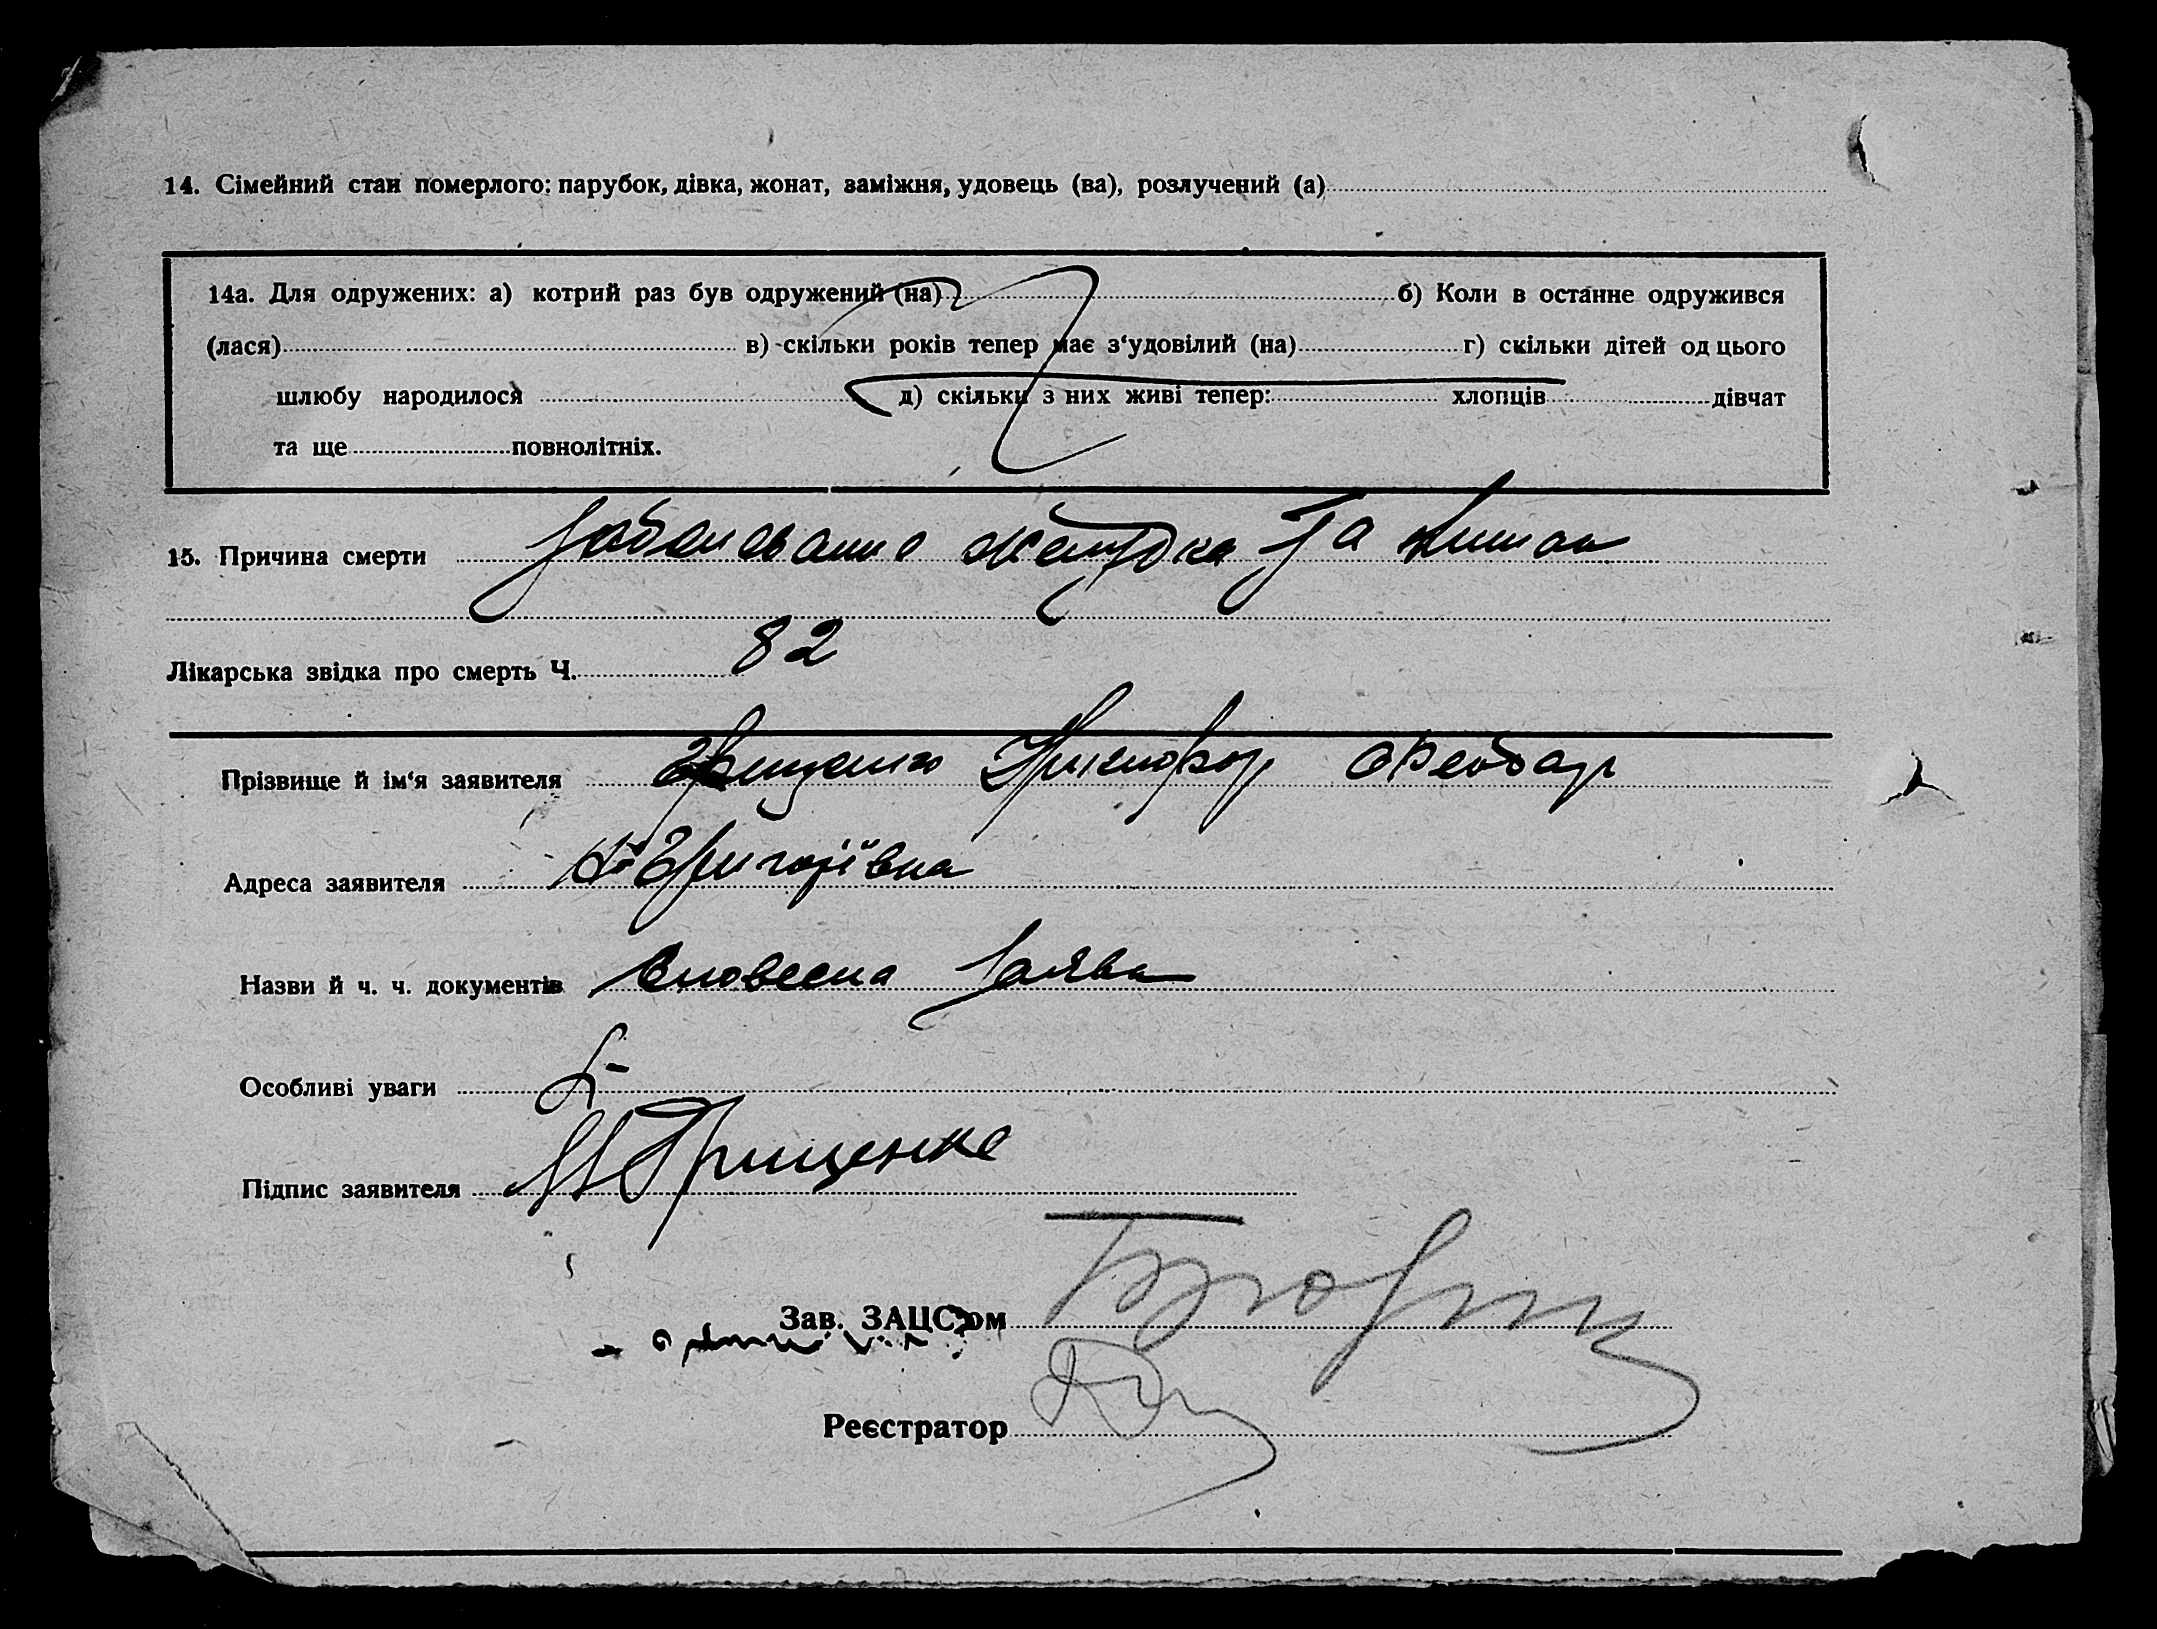 14. Сімейний стан померлого: парубок, дівка, жонат, заміжня, удовець (ва), розлучений (а)
14а. Для одружених: а) котрий раз був одружений (на) б) Коли в останнє одружився
(лася) в) скільки років тепер має з‘удовілий (на) г) скільки дітей од цього
шлюбу народилося д) скільки з них живі тепер: хлопців дівчат
та ще повнолітніх.
15. Причина смерти Заболевание желудка та кишок
Лікарська звідка про смерть Ч. 82
Прізвище й ім‘я заявителя Грищенко
Адреса заявителя Григорївка
Назви й ч. ч. документів Словесна Заява
Особливі уваги
Підпис заявителя Грищенко
Зав. ЗАЦС‘ом
Реєстратор